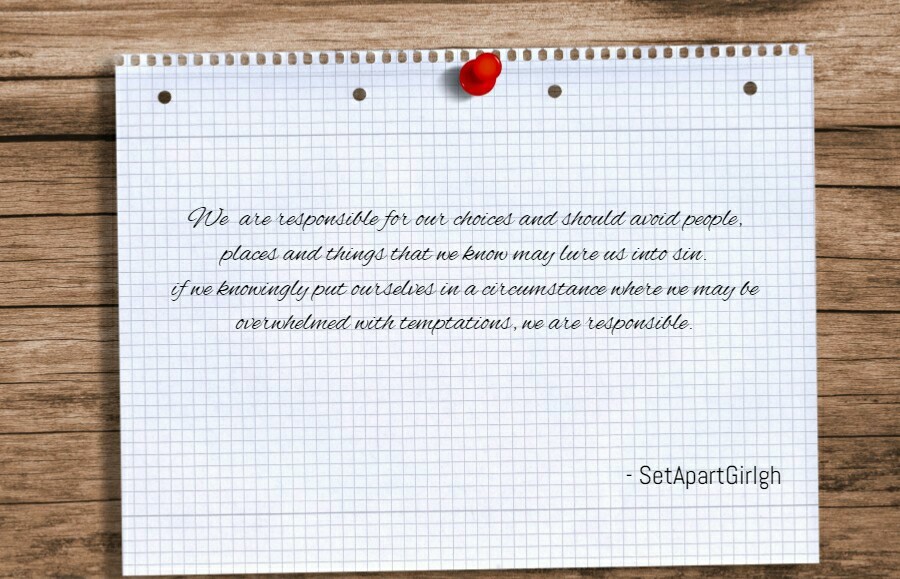 We are responsible for our choices and should avoid people,
places and things that we know may lure us into sin.
if we knowingly put ourselves in a circumstance where we may be
overwhelmed with temptations, we are responsible.
- SetApartGirlgh